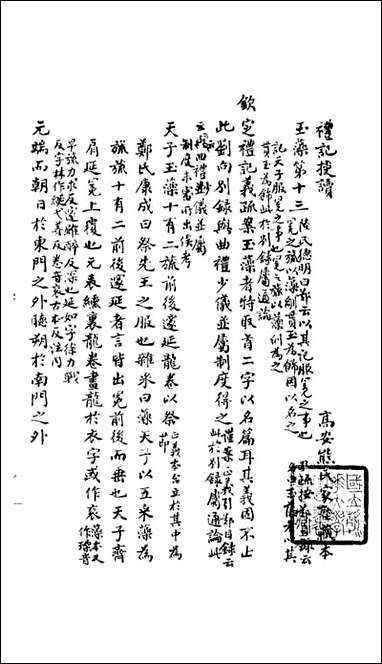 禮記梗讀 高安熊氏家塾藏本
玉藻第十三 陸氏德明曰鄭云以其記服冕之事也冕之旒以藻紃貫玉為飾因以名之
記天子服冕之事也冕之旒以藻紃為之
貫玉為飾此於别錄屬通論
欽定禮記義疏案玉藻者特取首二字以名篇耳其義固不止
此劉向别錄與曲禮少儀並屬制度得之
此於别錄屬通論此
云與曲禮少儀並屬
制度未審所出俟考
天子玉藻十有二旒前後邃延龍卷以祭
鄭氏康成曰祭先王之服也雜采曰藻天子以五采藻為
旒旒十有二前後邃延者言皆出冕前後而垂也天子齊
肩延冕上覆也元表纁裏龍卷畫龍於衣字或作衮 藻本又作璪音
早旒力求反邃雖醉反深也延如字徐力戰
反字林作綖弋善反卷音衮古本反注同
元端而朝日於東門之外聽朔於南門之外